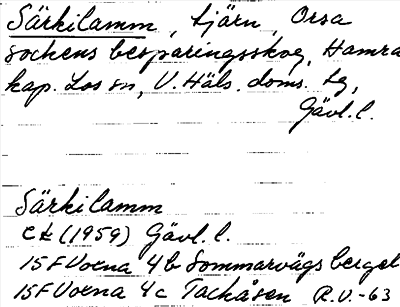 Särkilamm, tjärn, Orsa
sockens besparingsskog, Hamra
kap. Los sn, V. Häls. doms. lg,
Gävl. l.
Särkilamm
Ek (1959) Gävl. l.
15F Voxna 4b Sommarvägsberget
15F Voxna 4c Tackåsen R.V.-63